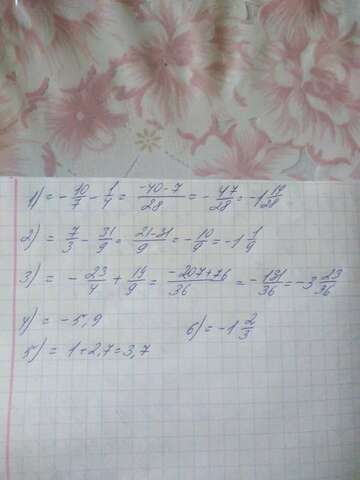 1) = -10/7 - 1/4 = (-40-7)/28 = -47/28 = -1 19/28
2) = 7/3 - 31/9 = (21-31)/9 = -10/9 = -1 1/9
3) = -23/4 + 19/9 = (-207+76)/36 = -131/36 = -3 23/36
4) = -5,9
6) = -1 2/3
5) = 1+2,7=3,7